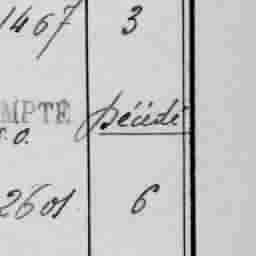 1467 3
MPTE Décédé
T.O.
2601 6